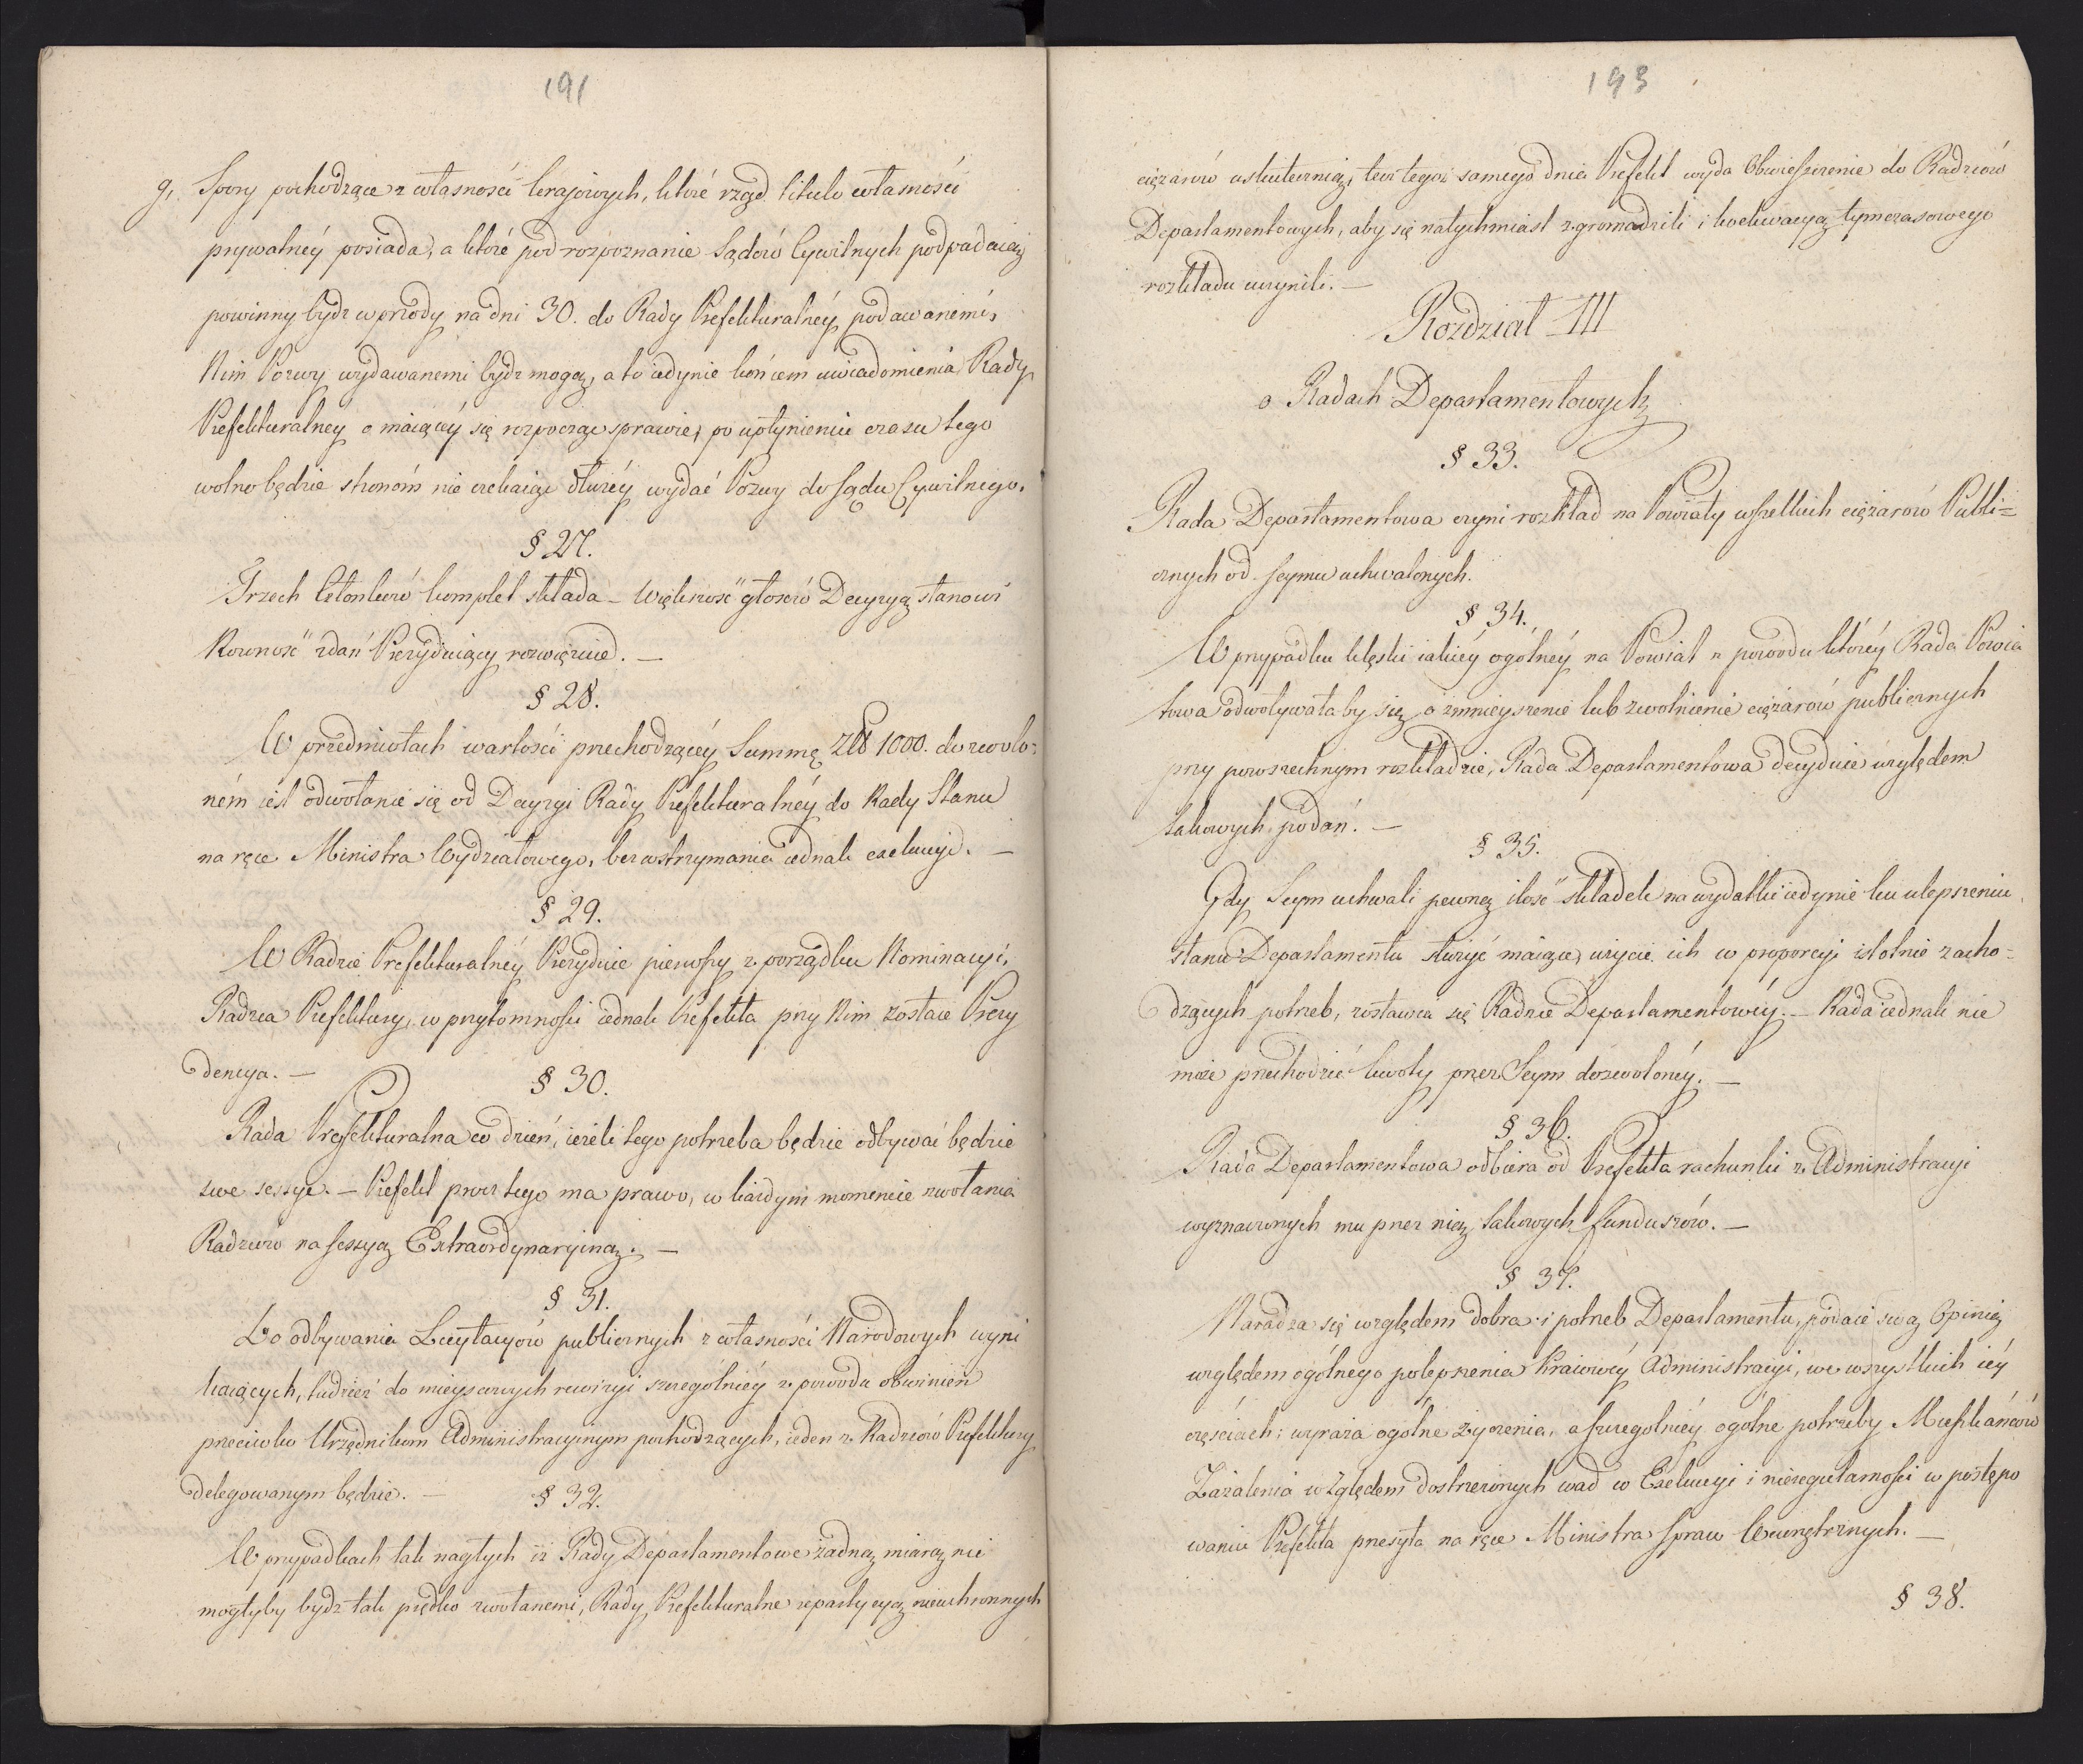 191
g, Spory pochodzące z własności kraiowych, które rząd titulo własności
prywatnéy posiada, a które pod rozpoznanie Sądów Cywilnych podpadaią
powinny bydz wprzody na dni 30. do Rady Prefekturalnéy podawanemi,
Nim Pozwy wydawanemi bydz mogą, a to iedynie końcem uwiadomienia Rady
Prefekturalnéy o maiącéy się rozpocząć sprawie, po upłynieniu czasu tego
wolno będzie stronóm nie czekaiąc dłużéy wydać Pozwy do Sądu Cywilnego.
§ 27.
Trzech Członków komplet składa – Większość głosów Decyzyą stanowi
Równość zdań Prezyduiący rozwięzuie. –
§ 28.
W przedmiotach wartości przechodzącéy Summę Złł 1000. dozwolo=
ném iest odwołanie się od Decyzyi Rady Prefekturalnéy do Rady Stanu
na ręce Ministra Wydziałowego, bez wstrzymania iednak exekucyi. –
§ 29.
W Radzie Prefekturalnéy Prezyduie pierwszy z porządku Nominacyi,
Radzca Prefektury, w przytomności iednak Prefekta przy Nim zostaie Prezy
dencya. –
§ 30.
Rada Prefekturalna co dzień, ieżeli tego potrzeba będzie odbywać będzie
swe sessye. – Prefekt procz tego ma prawo, w każdym momencie zwołania
Radzców na sessyą Extraordynaryiną. –
§ 31.
Do odbywania Licytacyów publicznych z własności Narodowych wyni
kaiących, tudzież do mieyscowych rewizyi szczególniéy z powodu obwinień
przeciwko Urzędnikom Administracyinym pochodzących, ieden z Radzców Prefektury
delegowanym będzie. –
§ 32.
W przypadkach tak nagłych iż Rady Departamentowe żadną miarą nie
mogłyby bydz tak prędko zwołanemi, Rady Prefekturalne repartycyą nieuchronnych
193
ciężarów uskutecznią, lecz tegoż samego dnia Prefekt wyda Obwieszczenie do Radzców
Departamentowych, aby się natychmiast zgromadzili i koekwacyą tymczasowego
rozkładu uczynili. –
Rozdział III
o Radach Departamentowych
§ 33.
Rada Departamentowa czyni rozkład na Powiaty wszelkich ciężarów Publi=
cznych od Seymu uchwalonych.
§ 34.
W przypadku klęski iakiéy ogólnéy na Powiat z powodu któréy Rada Powia
towa odwoływałaby się o zmnieyszenie lub zwolnienie ciężarów publicznych
przy powszechnym rozkładzie, Rada Departamentowa decyduie względem
takowych podań. –
§ 35.
Gdy Seym uchwali pewną ilość składek na wydatki iedynie ku ulepszeniu
stanu Departamentu służyć maiące, użycie ich w proporcyi istotnie zacho=
dzących potrzeb, zostawia się Radzie Departamentowéy. – Rada iednak nie
może przechodzić kwoty przez Seym dozwolonéy. –
§ 36.
Rada Departamentowa odbiera od Prefekta rachunki z Administracyi
wyznaczonych mu przez nią takowych funduszów. –
§ 37.
Naradza się względem dobra i potrzeb Departamentu, podaie swą Opinią
względem ogólnego polepszenia Kraiowéy Administracyi, we wszystkich iéy
częściach; wyraża ogólne życzenia, a szczególniéy ogólne potrzeby Mieszkańców
Zażalenia względem dostrzeżonych wad w Exekucyi i nieregularności w postępo
waniu Prefekta przesyła na ręce Ministra Spraw Wewnętrznych. –
§ 38.